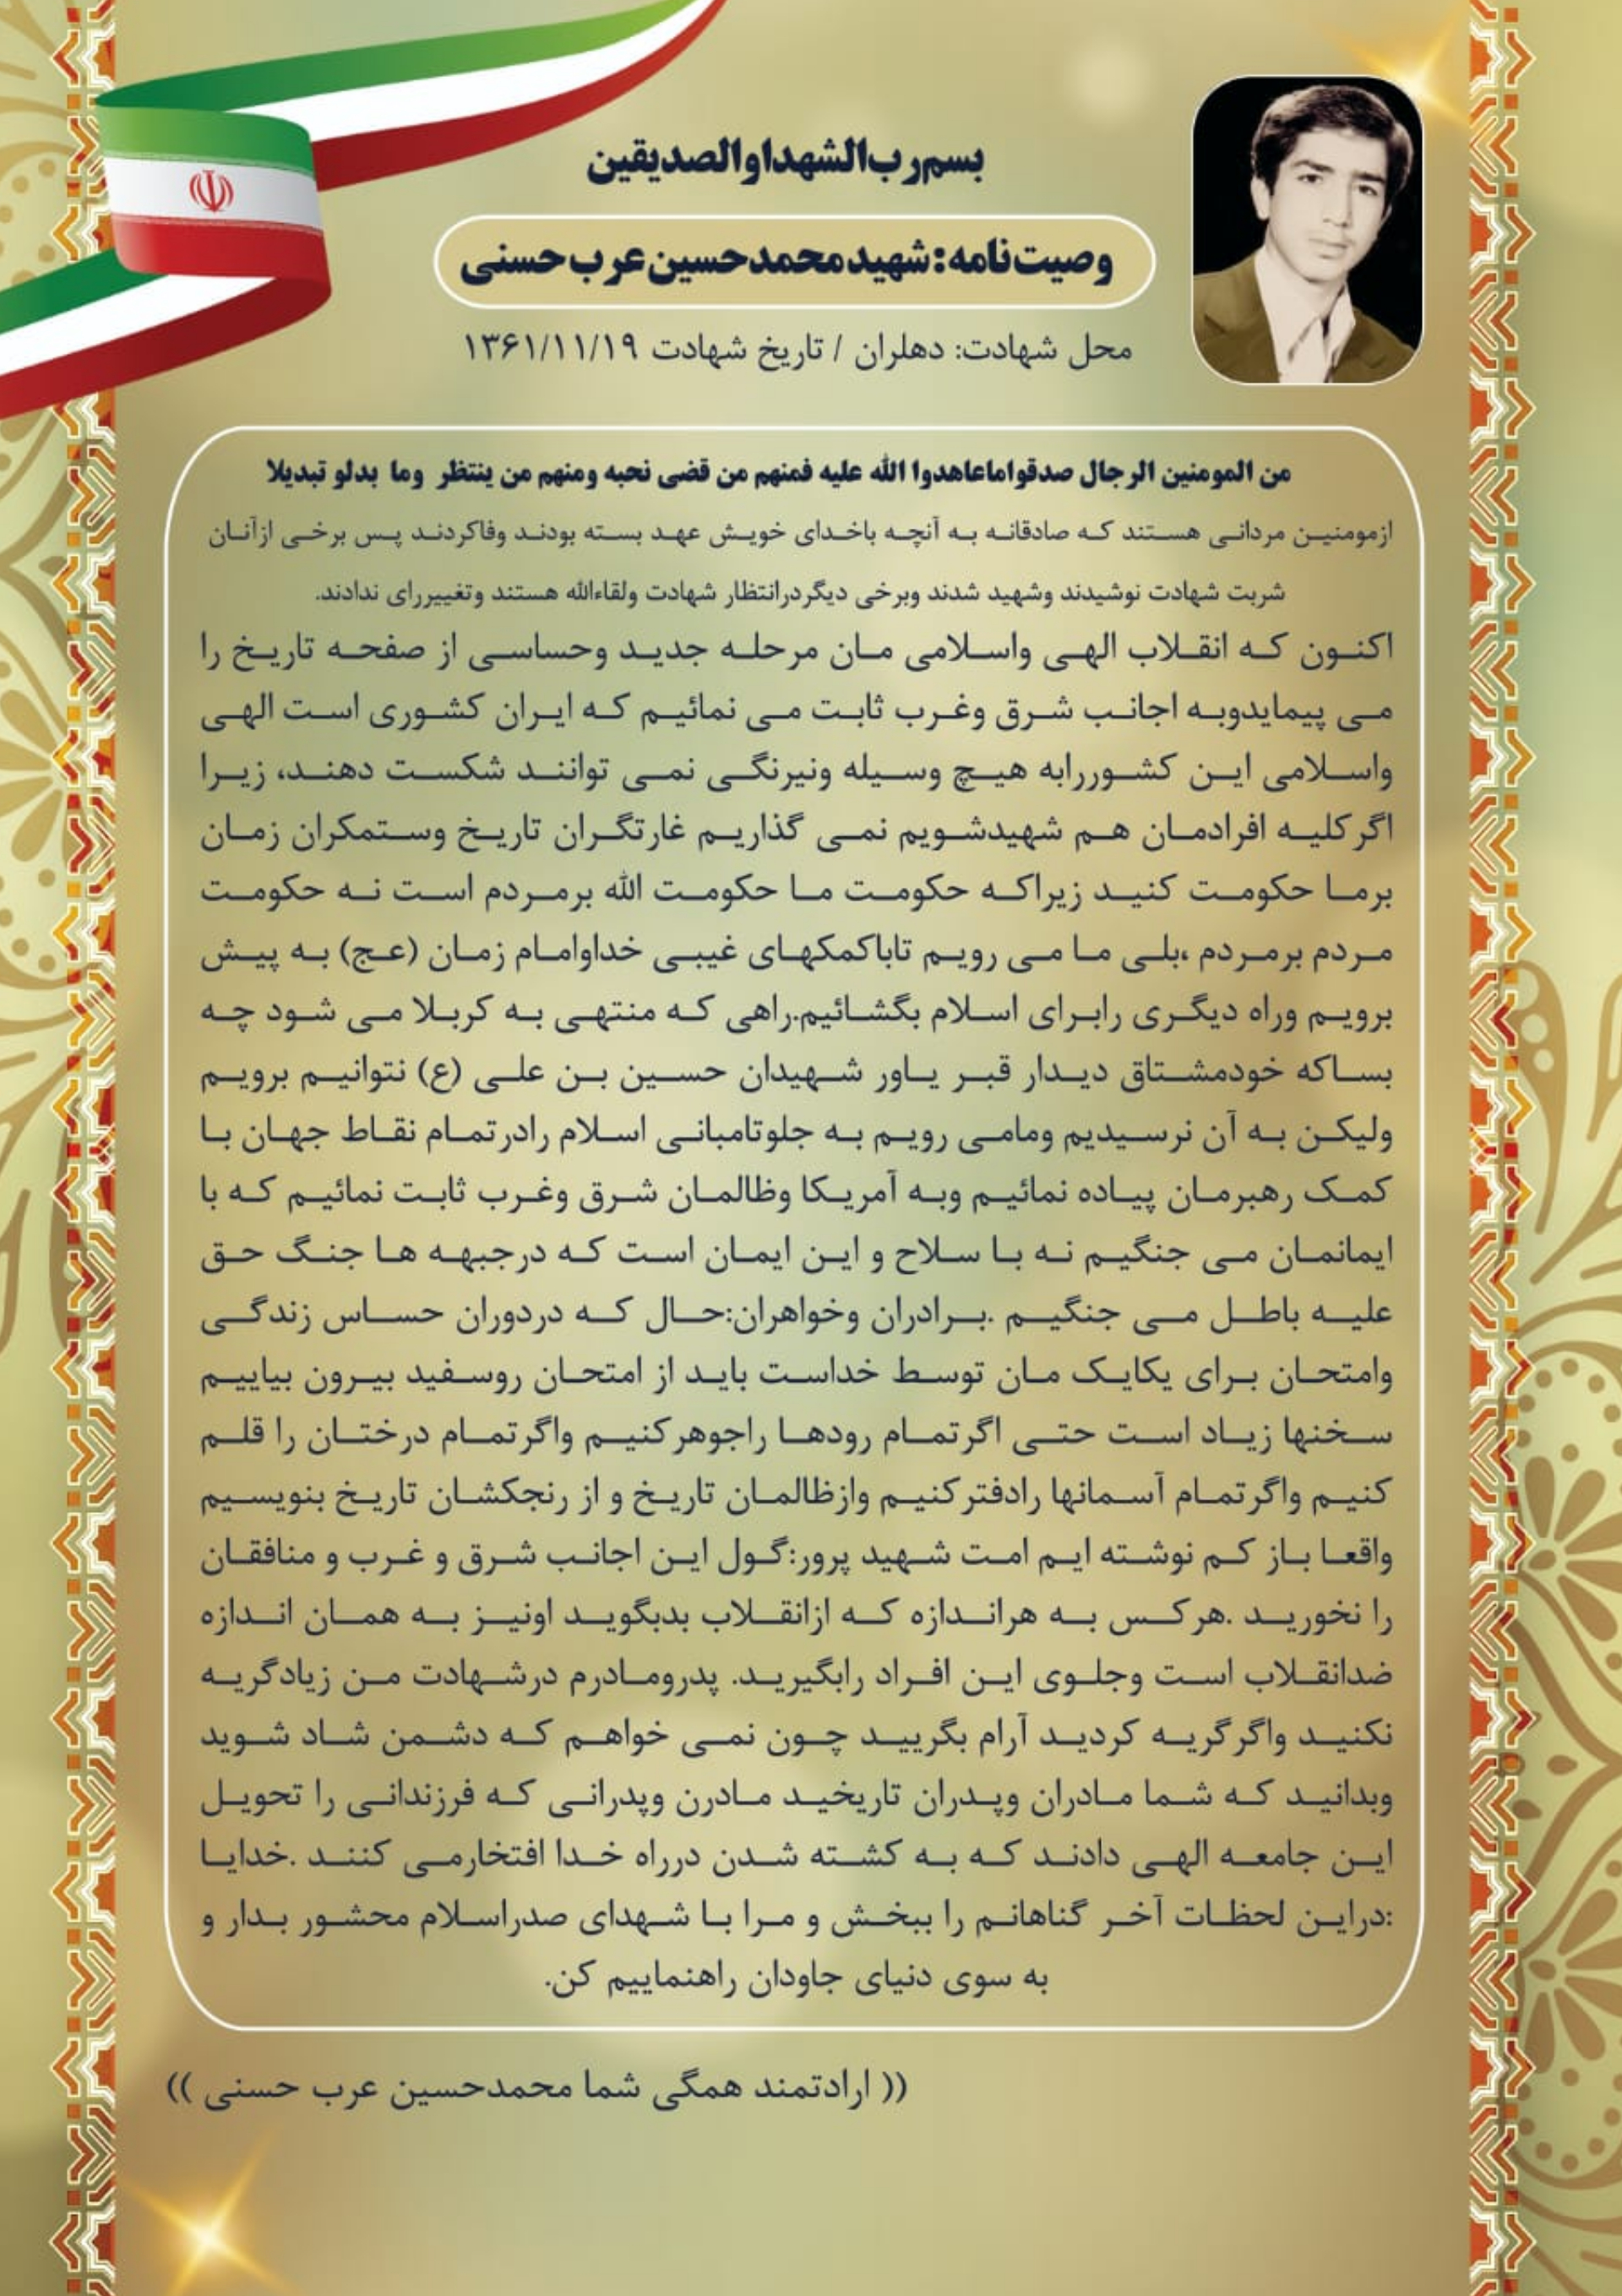 بسم رب الشهدا و الصدیقین
وصیت نامه: شهید محمدحسین عرب حسنی
محل شهادت: دهلران / تاریخ شهادت ۱۳۶۱/۱۱/۱۹
من المومنین الرجال صدقواماعاهدوا الله علیه فمنهم من قضی نحبه ومنهم من ینتظر وما بدلو تبدیلا
ازمومنین مردانی هستند که صادقانه به آنچه باخدای خویش عهد بسته بودند وفاکردند پس برخی ازآنان
شربت شهادت نوشیدند وشهید شدند وبرخی دیگردرانتظار شهادت ولقاءالله هستند وتغییررای ندادند.
اکنون که انقلاب الهی واسلامی مان مرحله جدید وحساسی از صفحه تاریخ را
می پیمایدوبه اجانب شرق وغرب ثابت می نمائیم که ایران کشوری است الهی
واسلامی این کشوررابه هیچ وسیله ونیرنگی نمی توانند شکست دهند، زیرا
اگرکلیه افرادمان هم شهیدشویم نمی گذاریم غارتگران تاریخ وستمکران زمان
برما حکومت کنید زیراکه حکومت ما حکومت الله برمردم است نه حکومت
مردم برمردم ،بلی ما می رویم تاباکمکهای غیبی خداوامام زمان (عج) به پیش
برویم وراه دیگری رابرای اسلام بگشائیم.راهی که منتهی به کربلا می شود چه
بساکه خودمشتاق دیدار قبر یاور شهیدان حسین بن علی (ع) نتوانیم برویم
ولیکن به آن نرسیدیم ومامی رویم به جلوتامبانی اسلام رادرتمام نقاط جهان با
کمک رهبرمان پیاده نمائیم وبه آمریکا وظالمان شرق وغرب ثابت نمائیم که با
ایمانمان می جنگیم نه با سلاح و این ایمان است که درجبهه ها جنگ حق
علیه باطل می جنگیم .برادران وخواهران:حال که دردوران حساس زندگی
وامتحان برای یکایک مان توسط خداست باید از امتحان روسفید بیرون بیاییم
سخنها زیاد است حتی اگرتمام رودها راجوهرکنیم واگرتمام درختان را قلم
کنیم واگرتمام آسمانها رادفترکنیم وازظالمان تاریخ و از رنجکشان تاریخ بنویسیم
واقعا باز کم نوشته ایم امت شهید پرور:گول این اجانب شرق و غرب و منافقان
را نخورید .هرکس به هراندازه که ازانقلاب بدبگوید اونیز به همان اندازه
ضدانقلاب است وجلوی این افراد رابگیرید. پدرومادرم درشهادت من زیادگریه
نکنید واگرگریه کردید آرام بگریید چون نمی خواهم که دشمن شاد شوید
وبدانید که شما مادران وپدران تاریخید مادرن وپدرانی که فرزندانی را تحویل
این جامعه الهی دادند که به کشته شدن درراه خدا افتخارمی کنند .خدایا
:دراین لحظات آخر گناهانم را ببخش و مرا با شهدای صدراسلام محشور بدار و
به سوی دنیای جاودان راهنماییم کن.
(( ارادتمند همگی شما محمدحسین عرب حسنی ))